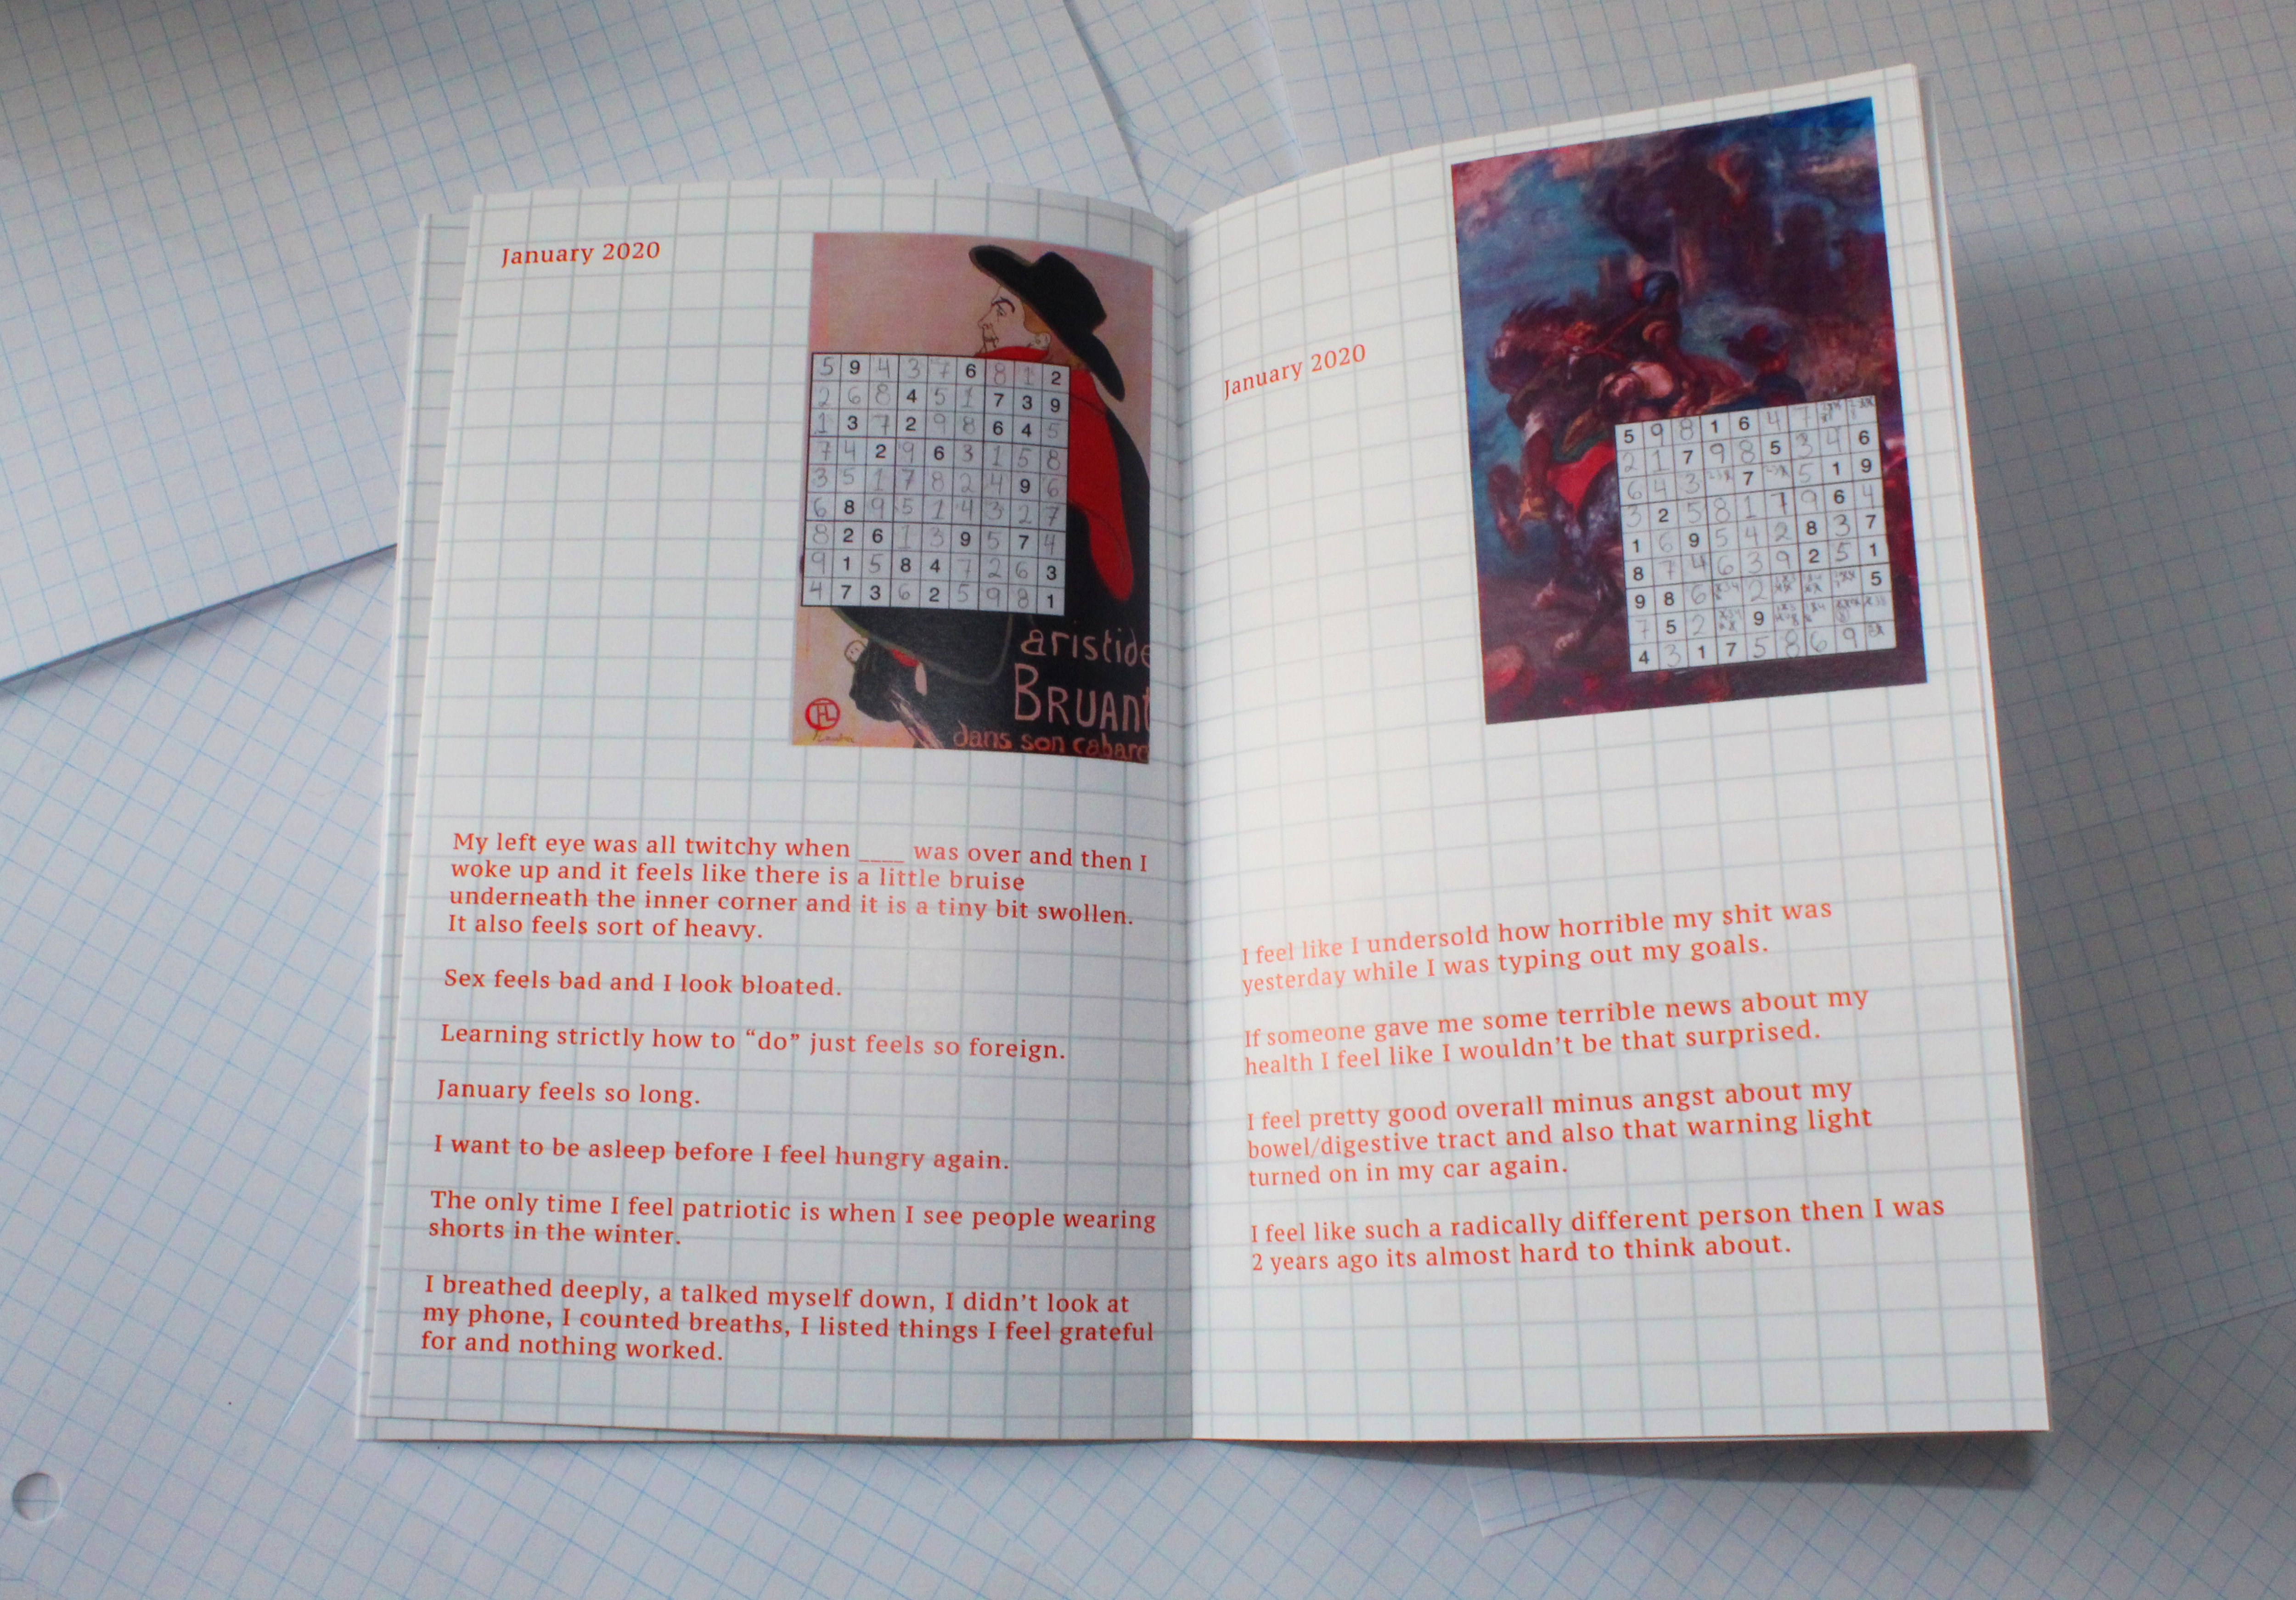 January 2020
5 9 4 3 7 6 8 1 2
2 6 8 4 5 1 7 3 9
1 3 7 2 9 8 6 4 5
7 4 2 9 6 3 1 5 8
3 5 1 7 8 2 4 9 6
6 8 9 5 1 4 3 2 7
8 2 6 1 3 9 5 7 4
9 1 5 8 4 7 2 6 3
4 7 3 6 2 5 9 8 1
aristide
BRUANT
dans son cabare
My left eye was all twitchy when ____ was over and then I
woke up and it feels like there is a little bruise
underneath the inner corner and it is a tiny bit swollen.
It also feels sort of heavy.
Sex feels bad and I look bloated.
Learning strictly how to “do” just feels so foreign.
January feels so long.
I want to be asleep before I feel hungry again.
The only time I feel patriotic is when I see people wearing
shorts in the winter.
I breathed deeply, a talked myself down, I didn’t look at
my phone, I counted breaths, I listed things I feel grateful
for and nothing worked.
January 2020
5 9 8 1 6 4 7
2 1 7 9 8 5 3 4 6
6 4 3 7 5 1 9
3 2 5 8 1 7 9 6 4
1 6 9 5 4 2 8 3 7
8 7 4 6 3 9 2 5 1
9 8 6 2 5
7 5 2 9
4 3 1 7 5 8 6 9
I feel like I undersold how horrible my shit was
yesterday while I was typing out my goals.
If someone gave me some terrible news about my
health I feel like I wouldn’t be that surprised.
I feel pretty good overall minus angst about my
bowel/digestive tract and also that warning light
turned on in my car again.
I feel like such a radically different person then I was
2 years ago its almost hard to think about.